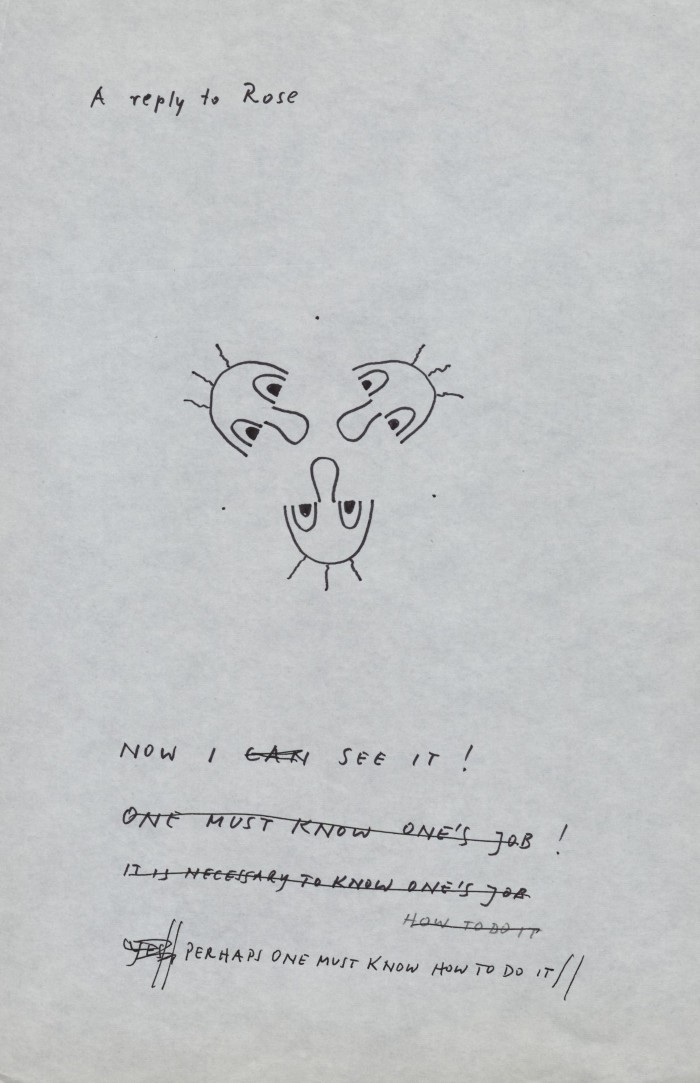 A reply to Rose
NOW I CAN SEE IT!
ONE MUST KNOW ONE'S JOB!
IT IS NECESSARY TO KNOW ONE'S JOB
HOW TO DO IT
YES, // PERHAPS ONE MUST KNOW HOW TO DO IT //